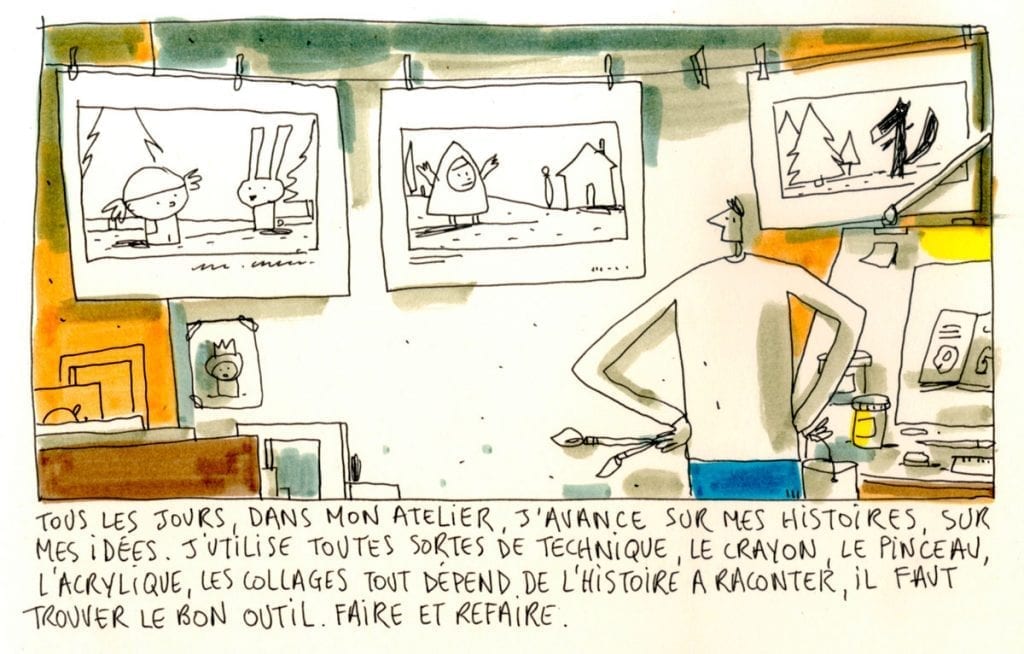 TOUS LES JOURS, DANS MON ATELIER, J'AVANCE SUR MES HISTOIRES, SUR
MES IDÉES. J'UTILISE TOUTES SORTES DE TECHNIQUE, LE CRAYON, LE PINCEAU,
L'ACRYLIQUE, LES COLLAGES TOUT DÉPEND DE L'HISTOIRE A RACONTER, IL FAUT
TROUVER LE BON OUTIL. FAIRE ET REFAIRE.